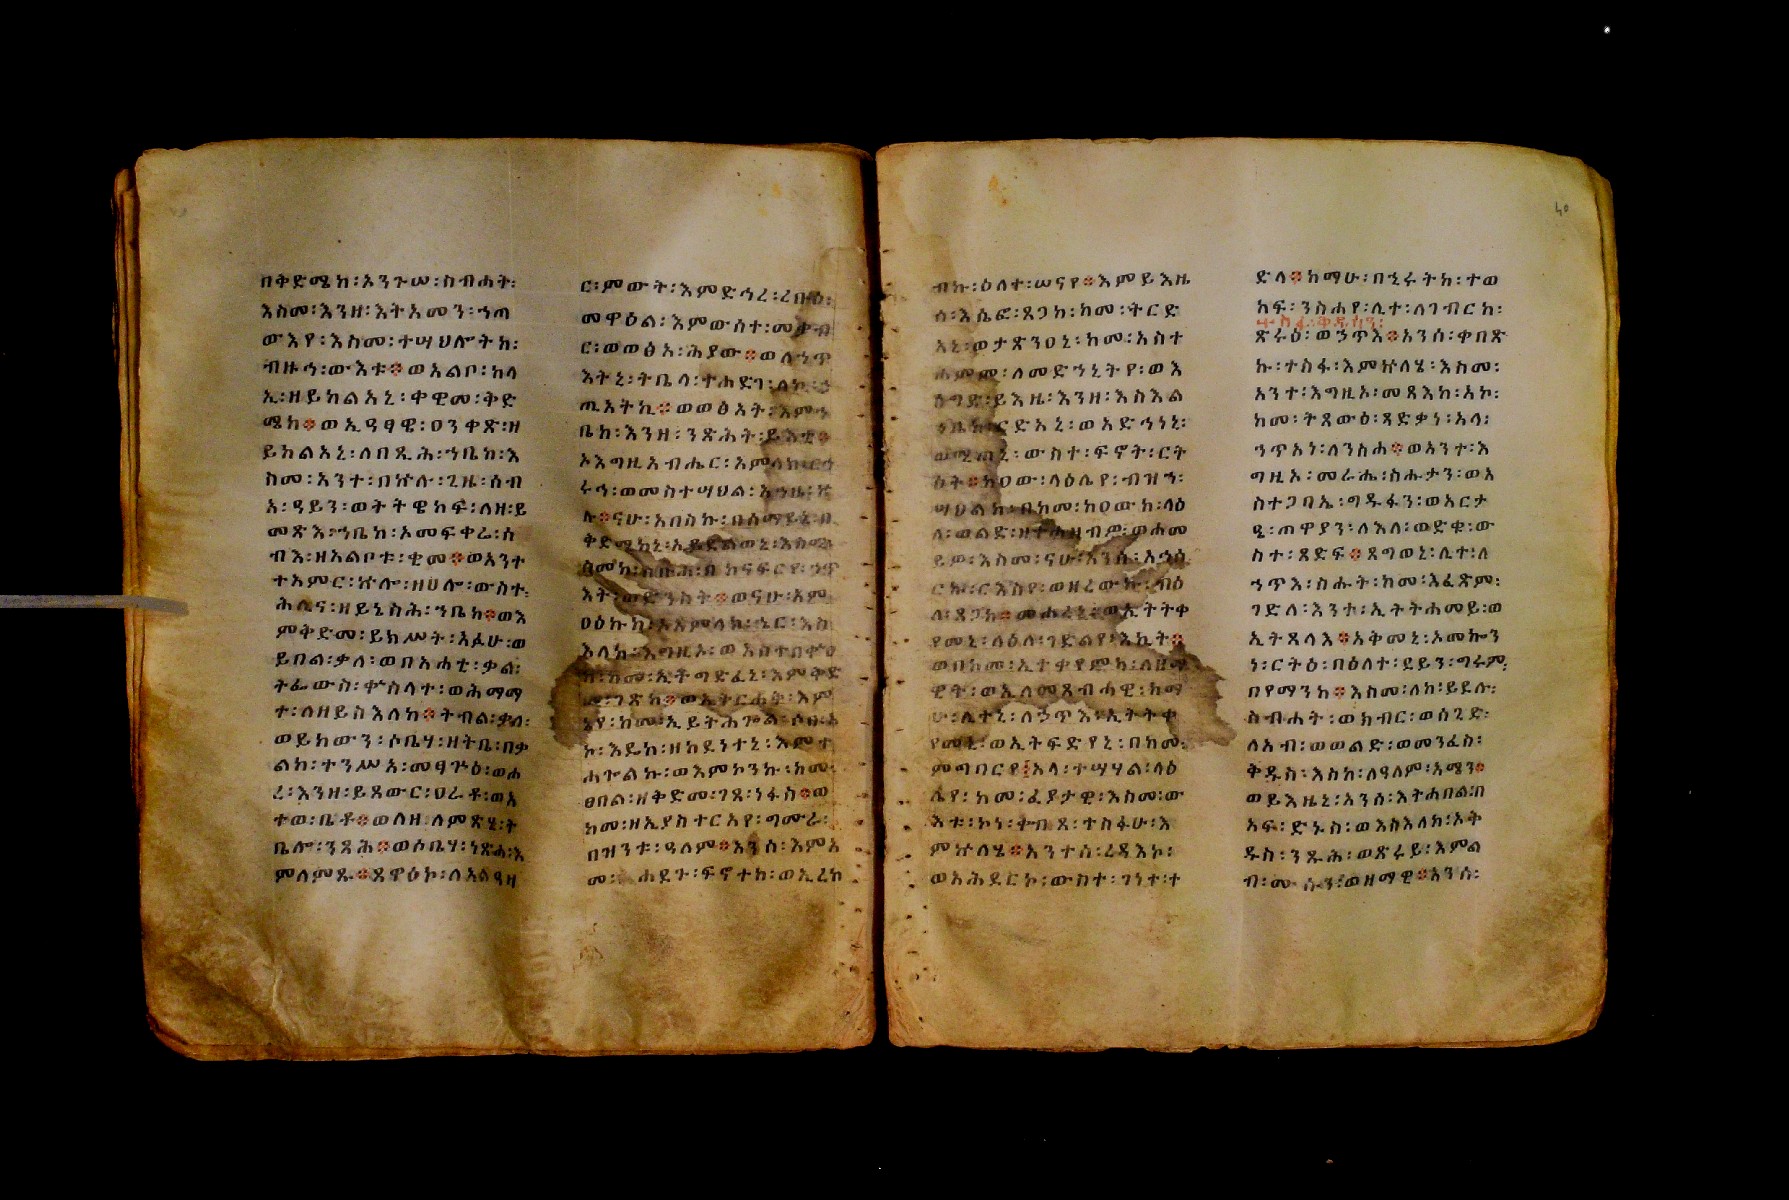 በቅድሜከ፡አንጉሠ፡ስብሐት፡
እስመ፡እንዘ፡እትአመን፡ኀጠ
ውእየ፡እስመ፡ተሣህሎትከ፡
ብዙኅ፡ውእቱ፨ወአልቦ፡ከላ
ኢ፡ዘይከልአኒ፡ቀዊመ፡ቅድ
ሜከ፨ወኢዓፃዌ፡ዐንቀጽ፡ዘ
ይከልአኒ፡ለበጺሕ፡ኀቤከ፡እ
ስመ፡አንተ፡በኵሉ፡ጊዜ፡ሰብ
አ፡ዓይን፡ወትትዌከፍ፡ለዘ፡ይ
መጽእ፡ኀቤከ፡አመፍቀሬ፡ሰ
ብእ፡ዘአልቦቱ፡ቂመ፨ወአንተ
ተአምር፡ኵሎ፡ዘሀሎ፡ውስተ፡
ሕሊና፡ዘይኔስሕ፡ኀቤከ፨ወእ
ምቅድመ፡ይክሥት፡አፉሁ፡ወ
ይበል፡ቃለ፡ወበአሐቲ፡ቃል፡
ትፌውስ፡ቍስላተ፡ወሕማማ
ተ፡ለዘይስእለከ፨ትብል፡ቃለ፡
ወይከውን፡ሶቤሃ፡ዘትቤ፡በቃ
ልከ፡ተንሥአ፡መፃጕዕ፡ወሐ
ረ፡እንዘ፡ይጸውር፡ዐራቶ፡ወአ
ተወ፡ቤቶ፨ወለዘ፡ለምጽሂ፡ት
ቤሎ፡ንጻሕ፨ወሶቤሃ፡ነጽሐ፡እ
ምለምጹ፨ጸዋዕኮ፡ለአልዓዛ
ር፡ምውት፡እምድኅረ፡ረቡዕ፡
መዋዕል፡እምውስተ፡መቃብ
ር፡ወወፅአ፡ሕያው፨ወለኃጥ
እትኒ፡ትቤላ፡ተሐደገ፡ለኪ፡ኃ
ጢአትኪ፨ወወፅአት፡እምኀ
ቤከ፡እንዘ፡ንጽሕት፡ይእቲ፨
ኦእግዚአብሔር፡አምላከ፡ርኅ
ሩኅ፡ወመስተሣህል፡
ሉ፨ናሁ፡አበስኩ፡በሰማይኒ፡በ
ቅድሜከኒ፡
እት፡ወድንስት፨ወናሁ፡አም
እላከ፡እግዚኦ፡
ከመ፡ኢትግድፈኒ፡እምቅድ
መ፡ገጽከ፨ወኢትርሐት፡እም
ኔየ፡ከመ፡ኢይትሕጐል፡
ኦ፡እዴከ፡ዘከደነተኒ፡እምተ
ሐጕልኩ፡ወእምኮንኩ፡ከመ፡
ፀበል፡ዘቅድመ፡ገጸ፡ነፋስ፨ወ
ከመ፡ዘኢያስተርአየ፡ግሙራ፡
በዝንቱ፡ዓለም፨እንሰ፡እምአ
መ፡ሐደጉ፡ፍኖተከ፡ወኢረከ
ብኩ፡ዕለተ፡ሠናየ፨እምይእዜ
ሰ፡እሴፎ፡ጸጋከ፡ከመ፡ትርድ
አኒ፡ወታጽንዐኒ፡ከመ፡አስተ
ሐምም፡ለመድኀኒትየ፡ወእ
ሰግድ፡ይእዜ፡እንዘ፡እስእል
ኀቤከ፡ርድአኒ፡ወአድኅነኒ፡
ወሚጠኒ፡ውስተ፡ፍኖት፡ርት
ዕት፨ከዐው፡ላዕሌየ፡ብዝኀ፡
ሣህልከ፡በከመ፡ከዐውከ፡ላዕ
ለ፡ወልድ፡
ይዎ፡እስመ፡ናሁ፡አንሰ፡
ለ፡ጸጋከ፨መሐረኒ፡ወኢትትቀ
የመኒ፡ላዕለ፡ገድልየ፡እኪት፨
ወበከመ፡ኢተቀየምከ፡
ዊት፡ወኢለመጸብሓዊ፡ከማ
ሁ፡ሊተኒ፡ለኃጥእ፡ኢትትቀ
የመኒ፡ወኢትፍድየኒ፡በከመ፡
ምግባርየ፡አላ፡ተሣሃል፡ላዕ
ሌየ፡ከመ፡ፈያታዊ፡እስመ፡ው
እቱ፡ኮነ፡ቀቢጸ፡ተስፋሁ፡እ
ምኵለሄ፨አንተሰ፡ረዳእኮ፡
ወአሕደርኮ፡ውስተ፡ገነተ፡ተ
ድላ፨ከማሁ፡በኂሩትከ፡ተወ
ከፍ፡ንስሐየ፡ሊተ፡ለገብርከ፡
ጽሩዕ፡ወኃጥእ፨አንሰ፡ቀበጽ
ኩ፡ተስፋ፡እምኵለሄ፡እስመ፡
አንተ፡እግዚኦ፡መጻእከ፡አኮ፡
ከመ፡ትጸውዕ፡ጻድቃነ፡አላ፡
ኃጥአነ፡ለንስሐ፨ወአንተ፡እ
ግዚኦ፡መራሔ፡ስሑታን፡ወአ
ስተጋባኤ፡ግዱፋን፡ወአርታ
ዒ፡ጠዋያን፡ለእለ፡ወድቁ፡ው
ስተ፡ጸድፍ፨ጸግወኒ፡ሊተ፡ለ
ኀጥእ፡ስሑት፡ከመ፡እፈጽም፡
ገድለ፡አንተ፡ኢትትሐመይ፡ወ
ኢትጸላእ፨አቅመኒ፡አመኰን
ነ፡ርትዕ፡በዕለተ፡ደይን፡ግሩም፡
በየማንከ፨እስመ፡ለከ፡ይደሉ፡
ስብሐት፡ወክብር፡ወሰጊድ፡
ለአብ፡ወወልድ፡ወመንፈስ፡
ቅዱስ፡እስከ፡ለዓለም፡አሜን፨
ወይእዜኒ፡አንሰ፡እትሐበል፡በ
አፍ፡ድኑስ፡ወእስእለከ፡አቅ
ዱስ፡ንጹሕ፡ወጽሩይ፡እምል
ብ፡ሙሱን፡ወዘማዊ፨አንሰ፡